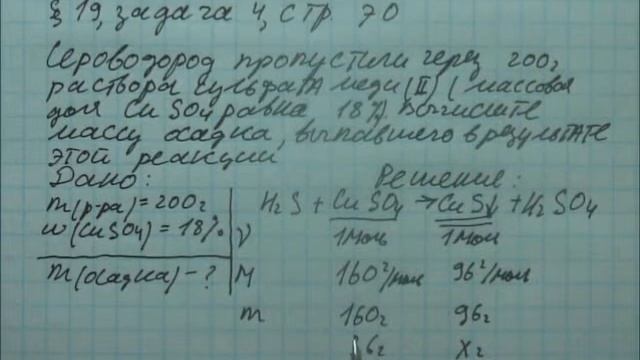 § 19, задача 4, стр. 70
Сероводород пропустили через 200г
раствора сульфата меди (II) (массовая
доля CuSO4 равна 18%). Вычислите
массу осадка, выпавшего в результате
этой реакции
Дано: Решение:
m(р-ра) = 200г H2S + CuSO4 → CuS↓ + H2SO4
w(CuSO4) = 18% ν 1моль 1моль
m(осадка) - ? M 160г/моль 96г/моль
m 160г 96г
6г Xг